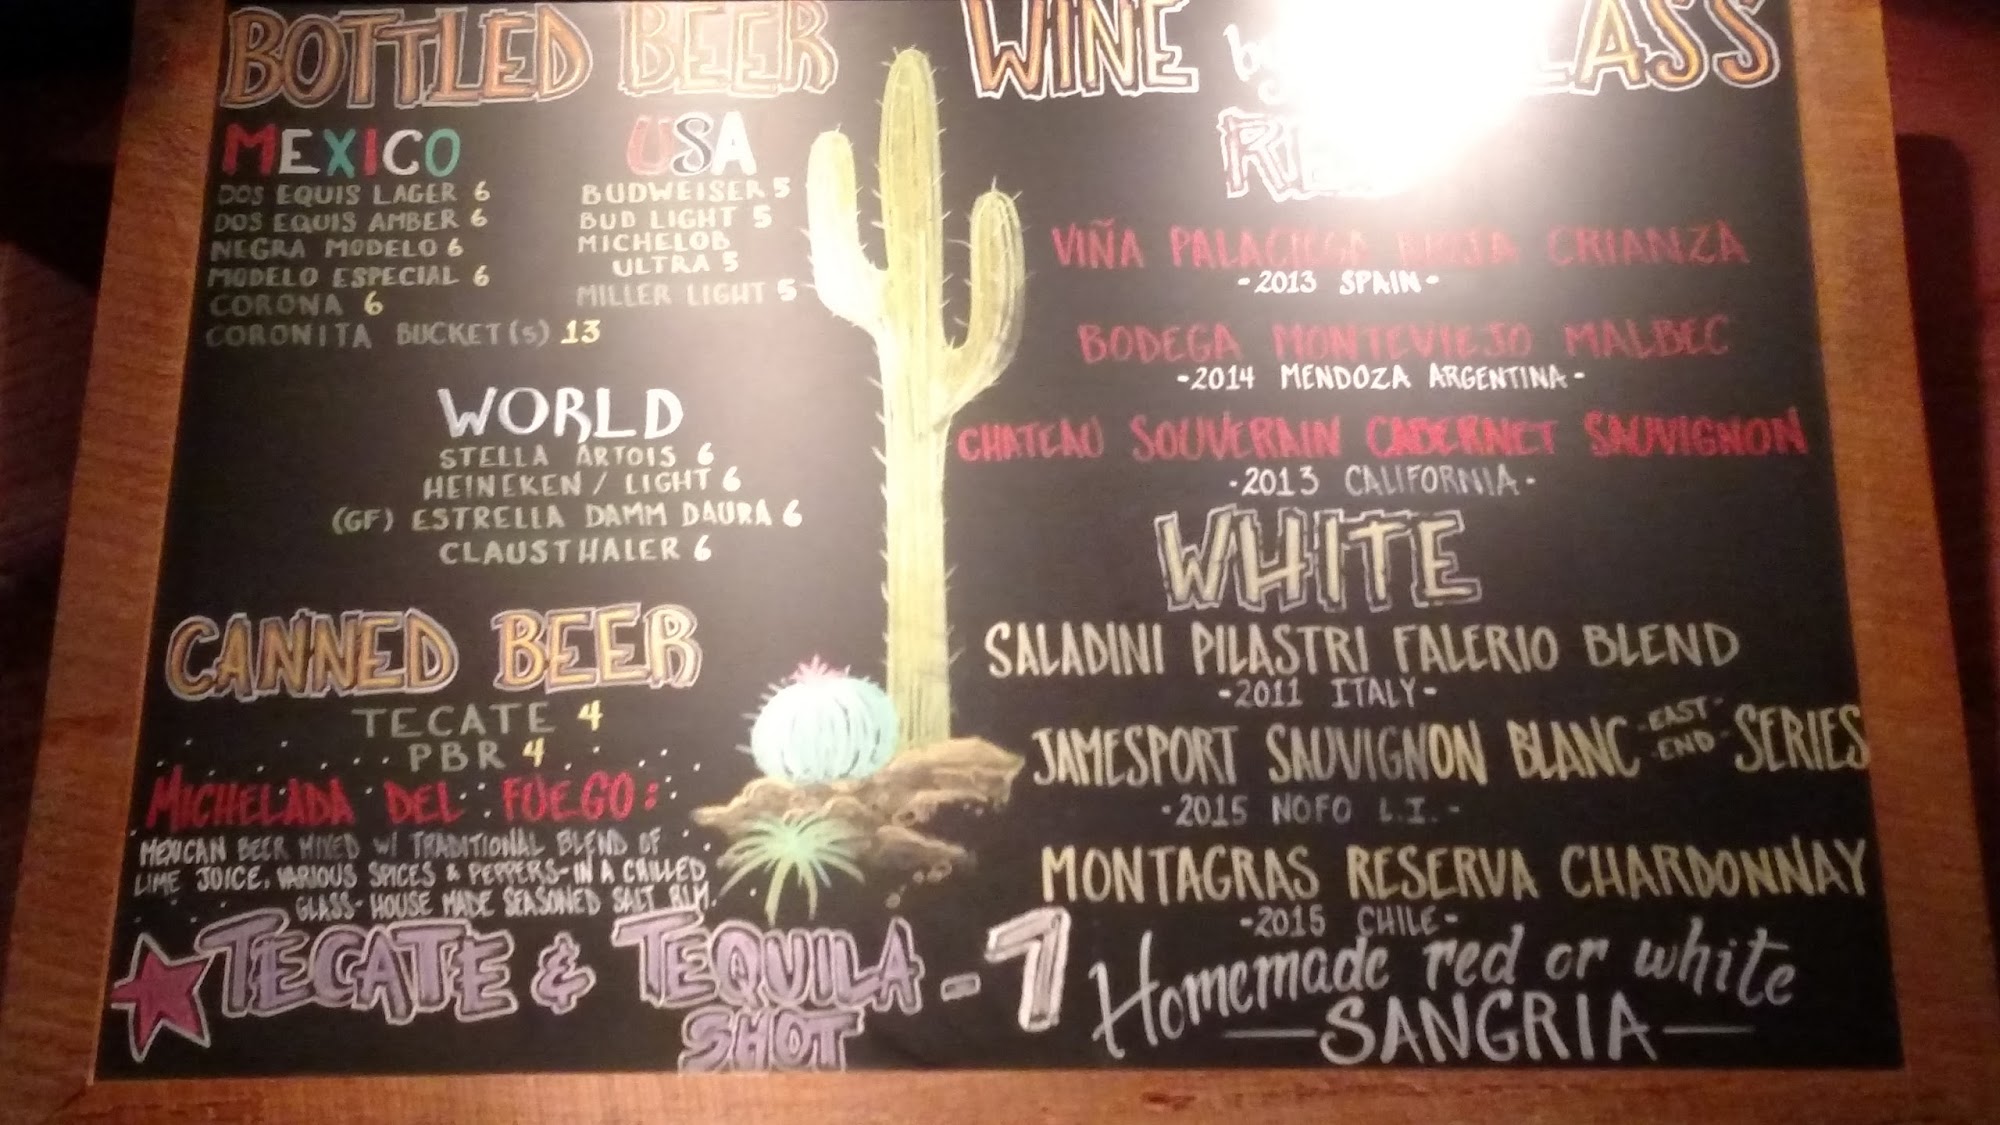 BOTTLED BEER
MEXICO
DOS EQUIS LAGER 6
DOS EQUIS AMBER 6
NEGRA MODELO 6
MODELO ESPECIAL 6
CORONA 6
CORONITA BUCKET(S) 13
USA
BUDWEISER 5
BUD LIGHT 5
MICHELOB
ULTRA 5
MILLER LIGHT 5
WORLD
STELLA ARTOIS 6
HEINEKEN / LIGHT 6
(GF) ESTRELLA DAMM DAURA 6
CLAUSTHALER 6
CANNED BEER
TECATE 4
PBR 4
MICHELADA DEL FUEGO:
MEXICAN BEER MIXED W/ TRADITIONAL BLEND OF
LIME JUICE, VARIOUS SPICES & PEPPERS-IN A CHILLED
GLASS-HOUSE MADE SEASONED SALT RIM.
TECATE & TEQUILA - 7
SHOT
WINE by GLASS
VIÑA PALACIEGA RIOJA CRIANZA
-2013 SPAIN-
BODEGA MONTEVIEJO MALBEC
-2014 MENDOZA ARGENTINA-
CHATEAU SOUVERAIN CABERNET SAUVIGNON
-2013 CALIFORNIA-
WHITE
SALADINI PILASTRI FALERIO BLEND
-2011 ITALY-
JAMESPORT SAUVIGNON BLANC -EAST END- SERIES
-2015 NOFO L.I.-
MONTAGRAS RESERVA CHARDONNAY
-2015 CHILE-
Homemade red or white
SANGRIA